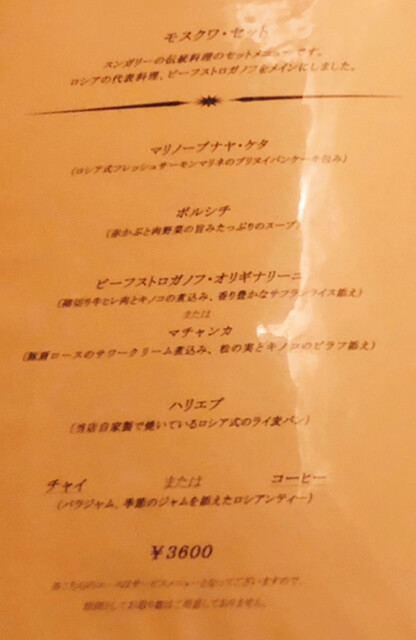 モスクワ・セット
スンガリーの伝統料理のセットメニューです。
ロシアの代表料理、ビーフストロガノフをメインにしました。
マリノーブナヤ・ケタ
(ロシア式フレッシュサーモンマリネのブリヌイパンケーキ包み)
ボルシチ
(赤かぶと肉野菜の旨みたっぷりのスープ)
ビーフストロガノフ・オリギナリーニ
(細切り牛ヒレ肉とキノコの煮込み、香り豊かなサフランライス添え)
または
マチャンカ
(豚肩ロースのサワークリーム煮込み、松の実とキノコのピラフ添え)
ハリエブ
(当店自家製で焼いているロシア式のライ麦パン)
チャイ または コーヒー
(バラジャム、季節のジャムを添えたロシアンティー)
¥3600
のコースはサービスメニューとなってございますので、
としてお取り分けはご用意しておりません。